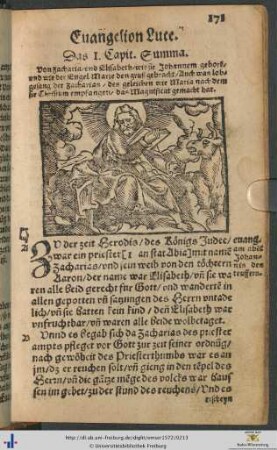 171
Euangelion Luce.
Das I. Capit. Summa.
Von Zacharia vnd Elisabeth/wie sie Johannem gehort/
vnd wie der Engel Marie den gruß gebracht/Auch was lob-
gesang der Zacharias / des gleichen wie Maria nach dem
sie Christum empfangen/ das Magnificat gemacht hat.
ZV der zeit Herodis/des Königs Judee/
war ein priester an stat Abia mit name
Zacharias/vnd sein weib von den töchtern
Aaron/der name war Elisabeth/vñ sie wa
ren alle beid gerecht für Gott/vnd wanderte in
allen gepotten vñ satzungen des Herrn vntade
lich/vñ sie hatten kein kind / deñ Elisabeth war
vnfruchtbar/vñ waren alle beide wolbetaget.
Vnnd es begab sich da Zacharias des priester
ampts pfleget vor Gott zur zeit seiner ordnũg/
nach gewöheit des Priesterthumbs war es an
jm/dz er reuchen solt/vñ gieng in den tẽpel des
Herrn/vñ die gãtze mẽge des volcks war haus
sen im gebet/zu der stund des reuchens/Vnd es
euang.
am abet
Johan-
nis des
teuffers.
B
erscheyn
http://dl.ub.uni-freiburg.de/diglit/emser1572/0213
© Universitätsbibliothek Freiburg
Baden-Württemberg